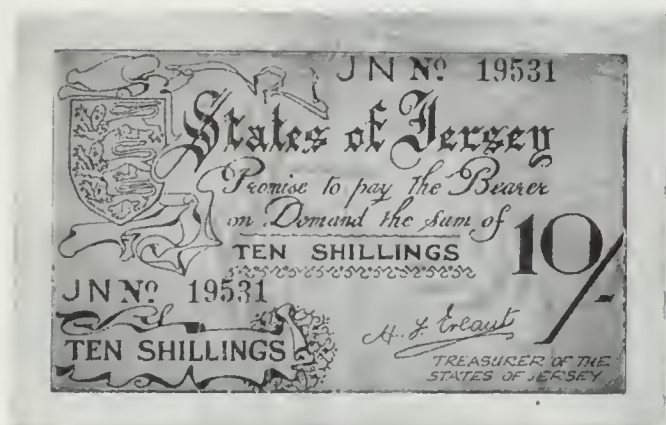 JN Nº 19531
States of Jersey
Promise to pay the Bearer
on Demand the sum of
TEN SHILLINGS
10/-
JN Nº 19531
TEN SHILLINGS
H. F. Ereaut
TREASURER OF THE
STATES OF JERSEY